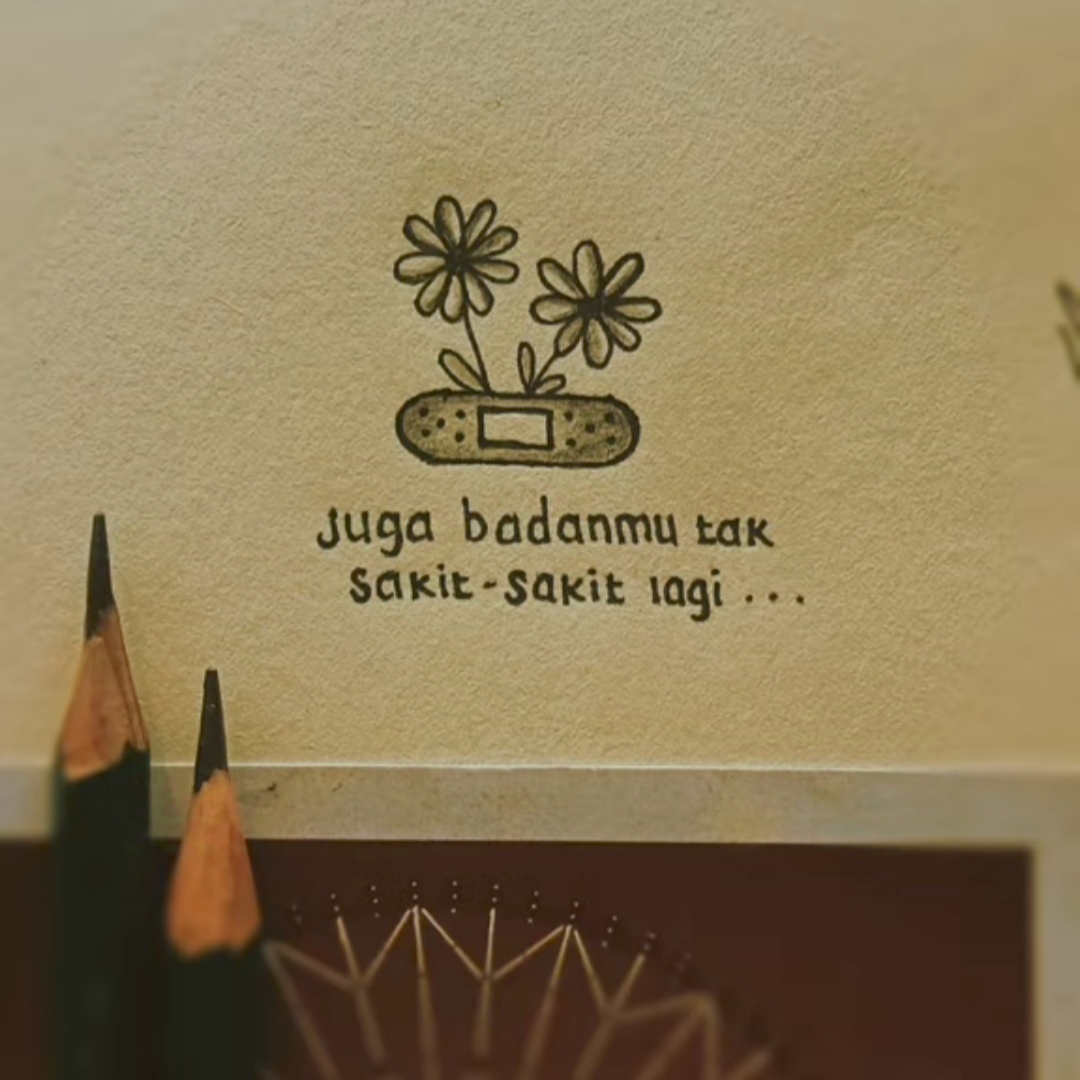 juga badanmu tak
sakit-sakit lagi ...